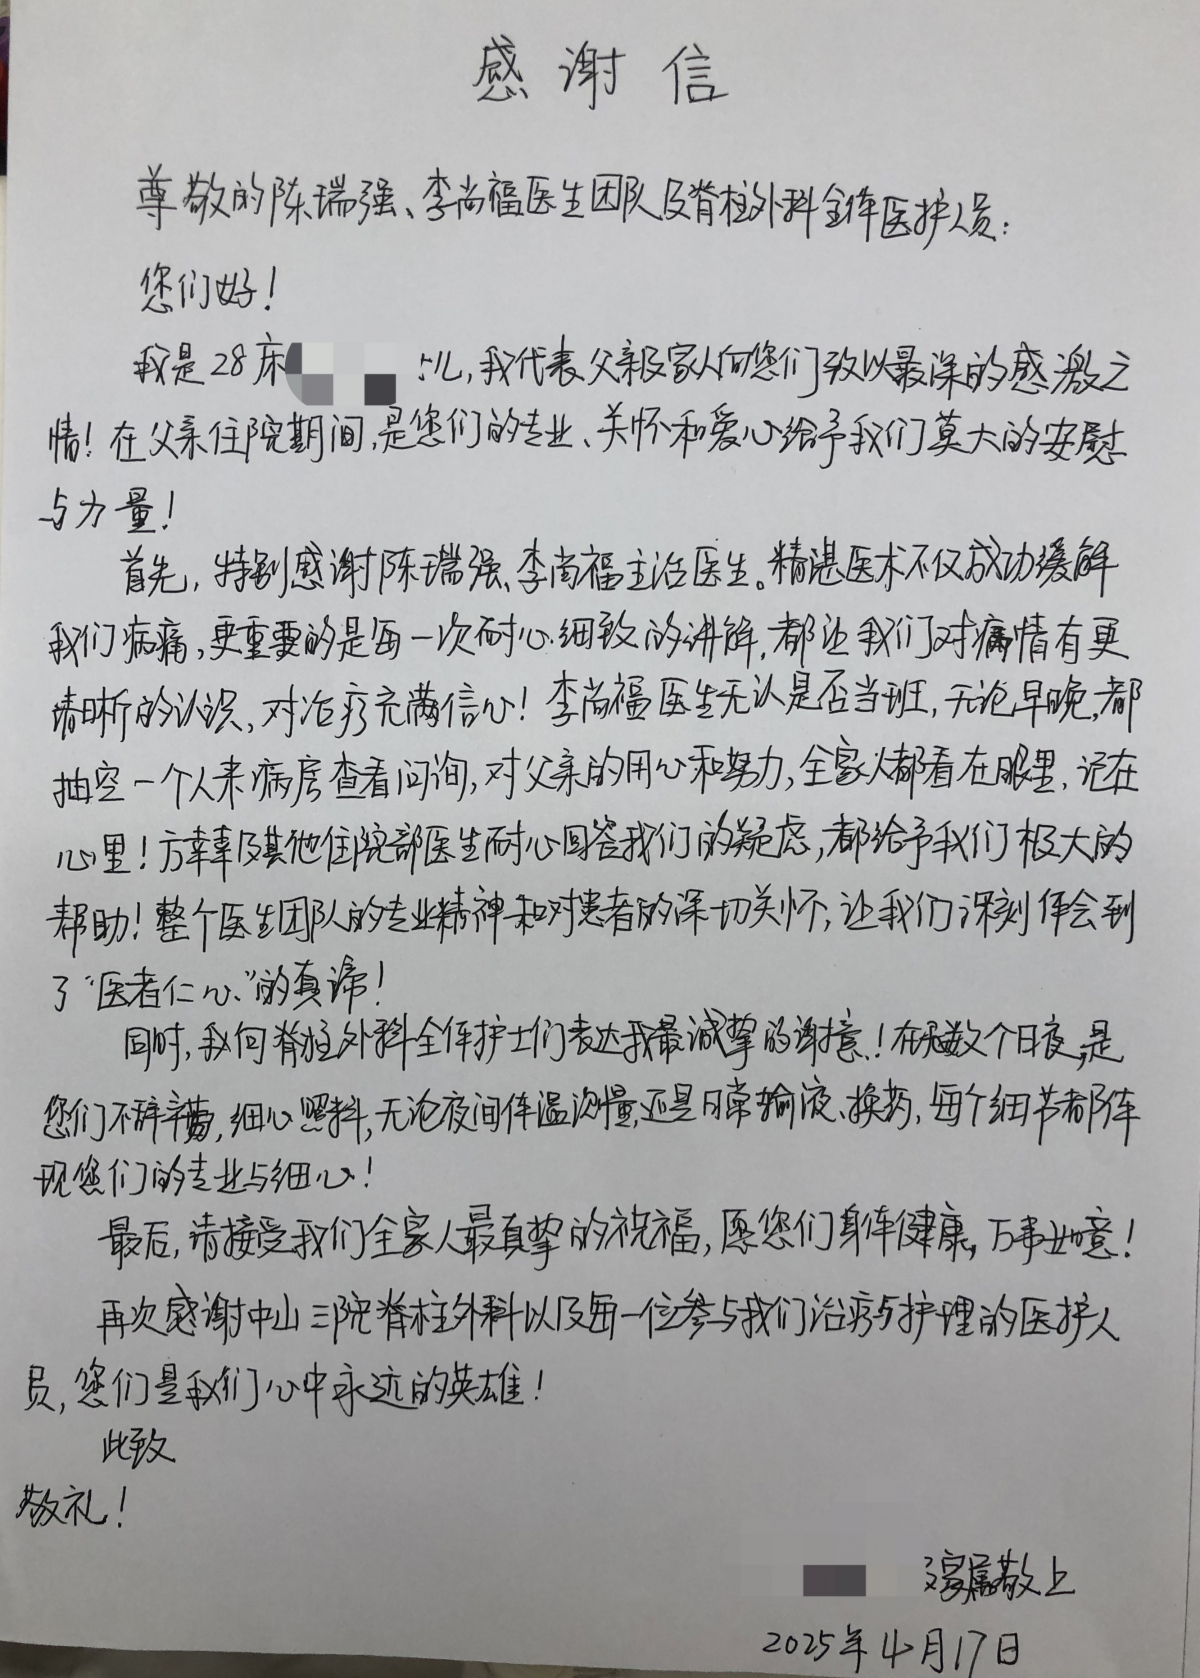 感谢信
尊敬的陈瑞强、李尚福医生团队及脊柱外科全体医护人员:
您们好!
我是28床 儿,我代表父亲及家人向您们致以最深的感激之
情!在父亲住院期间,是您们的专业、关怀和爱心给予我们莫大的安慰
与力量!
首先,特别感谢陈瑞强、李尚福主治医生。精湛医术不仅成功缓解
我们病痛,更重要的是每一次耐心细致的讲解,都让我们对病情有更
清晰的认识,对治疗充满信心!李尚福医生无认是否当班,无论早晚,都
抽空一个人来病房查看问询,对父亲的用心和努力,全家人都看在眼里,记在
心里!方幸及其他住院部医生耐心回答我们的疑虑,都给予我们极大的
帮助!整个医生团队的专业精神和对患者的深切关怀,让我们深刻体会到
了“医者仁心”的真谛!
同时,我向脊柱外科全体护士们表达我最诚挚的谢意!在无数个日夜,是
您们不辞辛劳,细心照料,无论夜间体温测量,还是日常输液、换药,每个细节都体
现您们的专业与细心!
最后,请接受我们全家人最真挚的祝福,愿您们身体健康,万事如意!
再次感谢中山三院脊柱外科以及每一位参与我们治疗与护理的医护人
员,您们是我们心中永远的英雄!
此致
敬礼!
及家属敬上
2025年4月17日